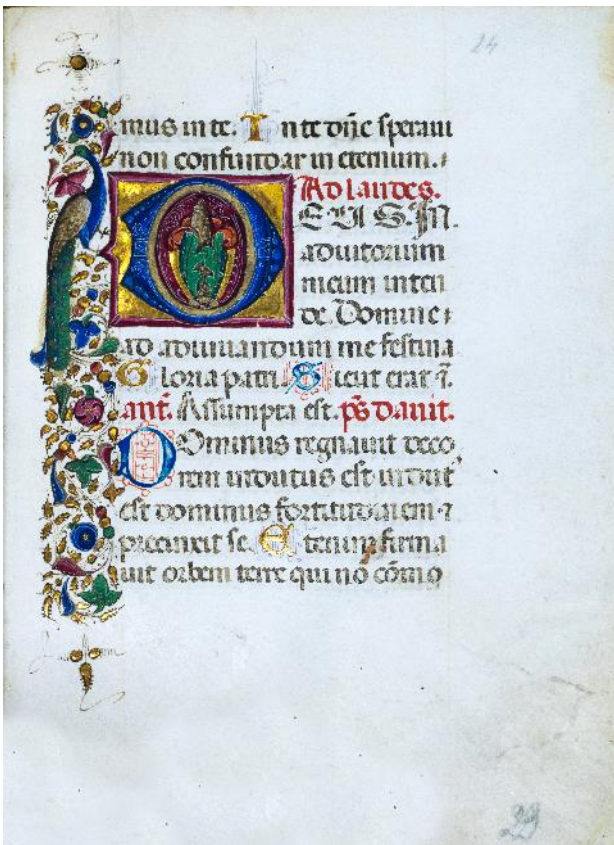 24
mus in te. In te dñe speraui
non confundar in eternum.
Ad laudes.
DEUS. IN
adiutorium
meum inten
de. Domine
ad adiuuandum me festina
Gloria patri. Sicut erat ⁊.
ant̄. Assumpta est. ps̄ dauit.
Dominus regnauit deco
rem indutus est indut'
est dominus fortitudinem ⁊
precinxit se. Etenim firma
uit orbem terre qui nō cōmo
23